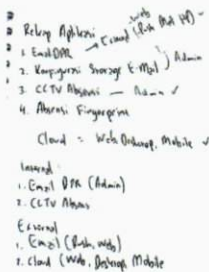 Rekap Aplikasi
1. Email DPR → External (Web, Push Mail HP)
2. Konfigurasi Storage E-Mail } Admin
3. CCTV Absensi — Admin ✓
4. Absensi Fingerprint
Cloud = Web Desktop, Mobile ✓
Internal :
1. Email DPR (Admin)
2. CCTV Absensi
External
1. Email (Push, Web)
2. Cloud (Web, Desktop, Mobile